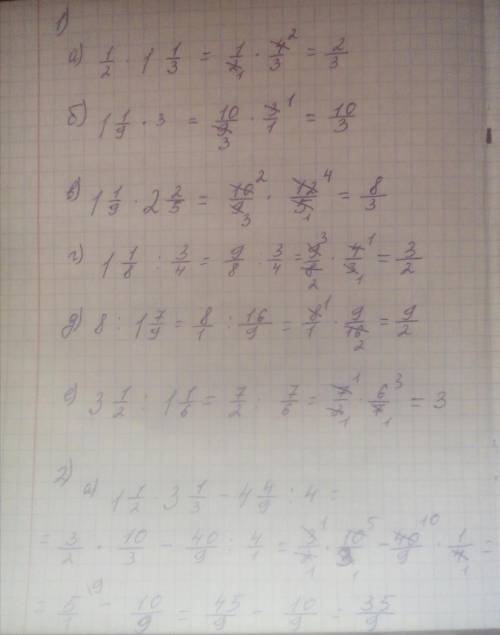 1)
а) 1/2 · 1 1/3 = 1/2₁ · 4²/3 = 2/3
б) 1 1/9 · 3 = 10/9₃ · 3¹/1 = 10/3
в) 1 1/9 · 2 2/5 = 10²/9₃ · 12⁴/5₁ = 8/3
г) 1 1/8 : 3/4 = 9/8 · 3/4 = 9³/8₂ · 4¹/3₁ = 3/2
д) 8 : 1 7/9 = 8/1 : 16/9 = 8¹/1 · 9/16₂ = 9/2
е) 3 1/2 : 1 1/6 = 7/2 : 7/6 = 7¹/2₁ · 6³/7₁ = 3
2)
а) 1 1/2 · 3 1/3 - 4 4/9 : 4 =
= 3/2 · 10/3 - 40/9 : 4/1 = 3¹/2₁ · 10⁵/3₁ - 40¹⁰/9 · 1/4₁ =
= 5/1 \9 - 10/9 = 45/9 - 10/9 = 35/9